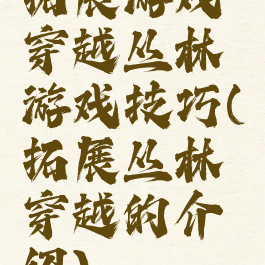 拓展游戏
穿越丛林
游戏技巧(
拓展丛林
穿越的介
绍)